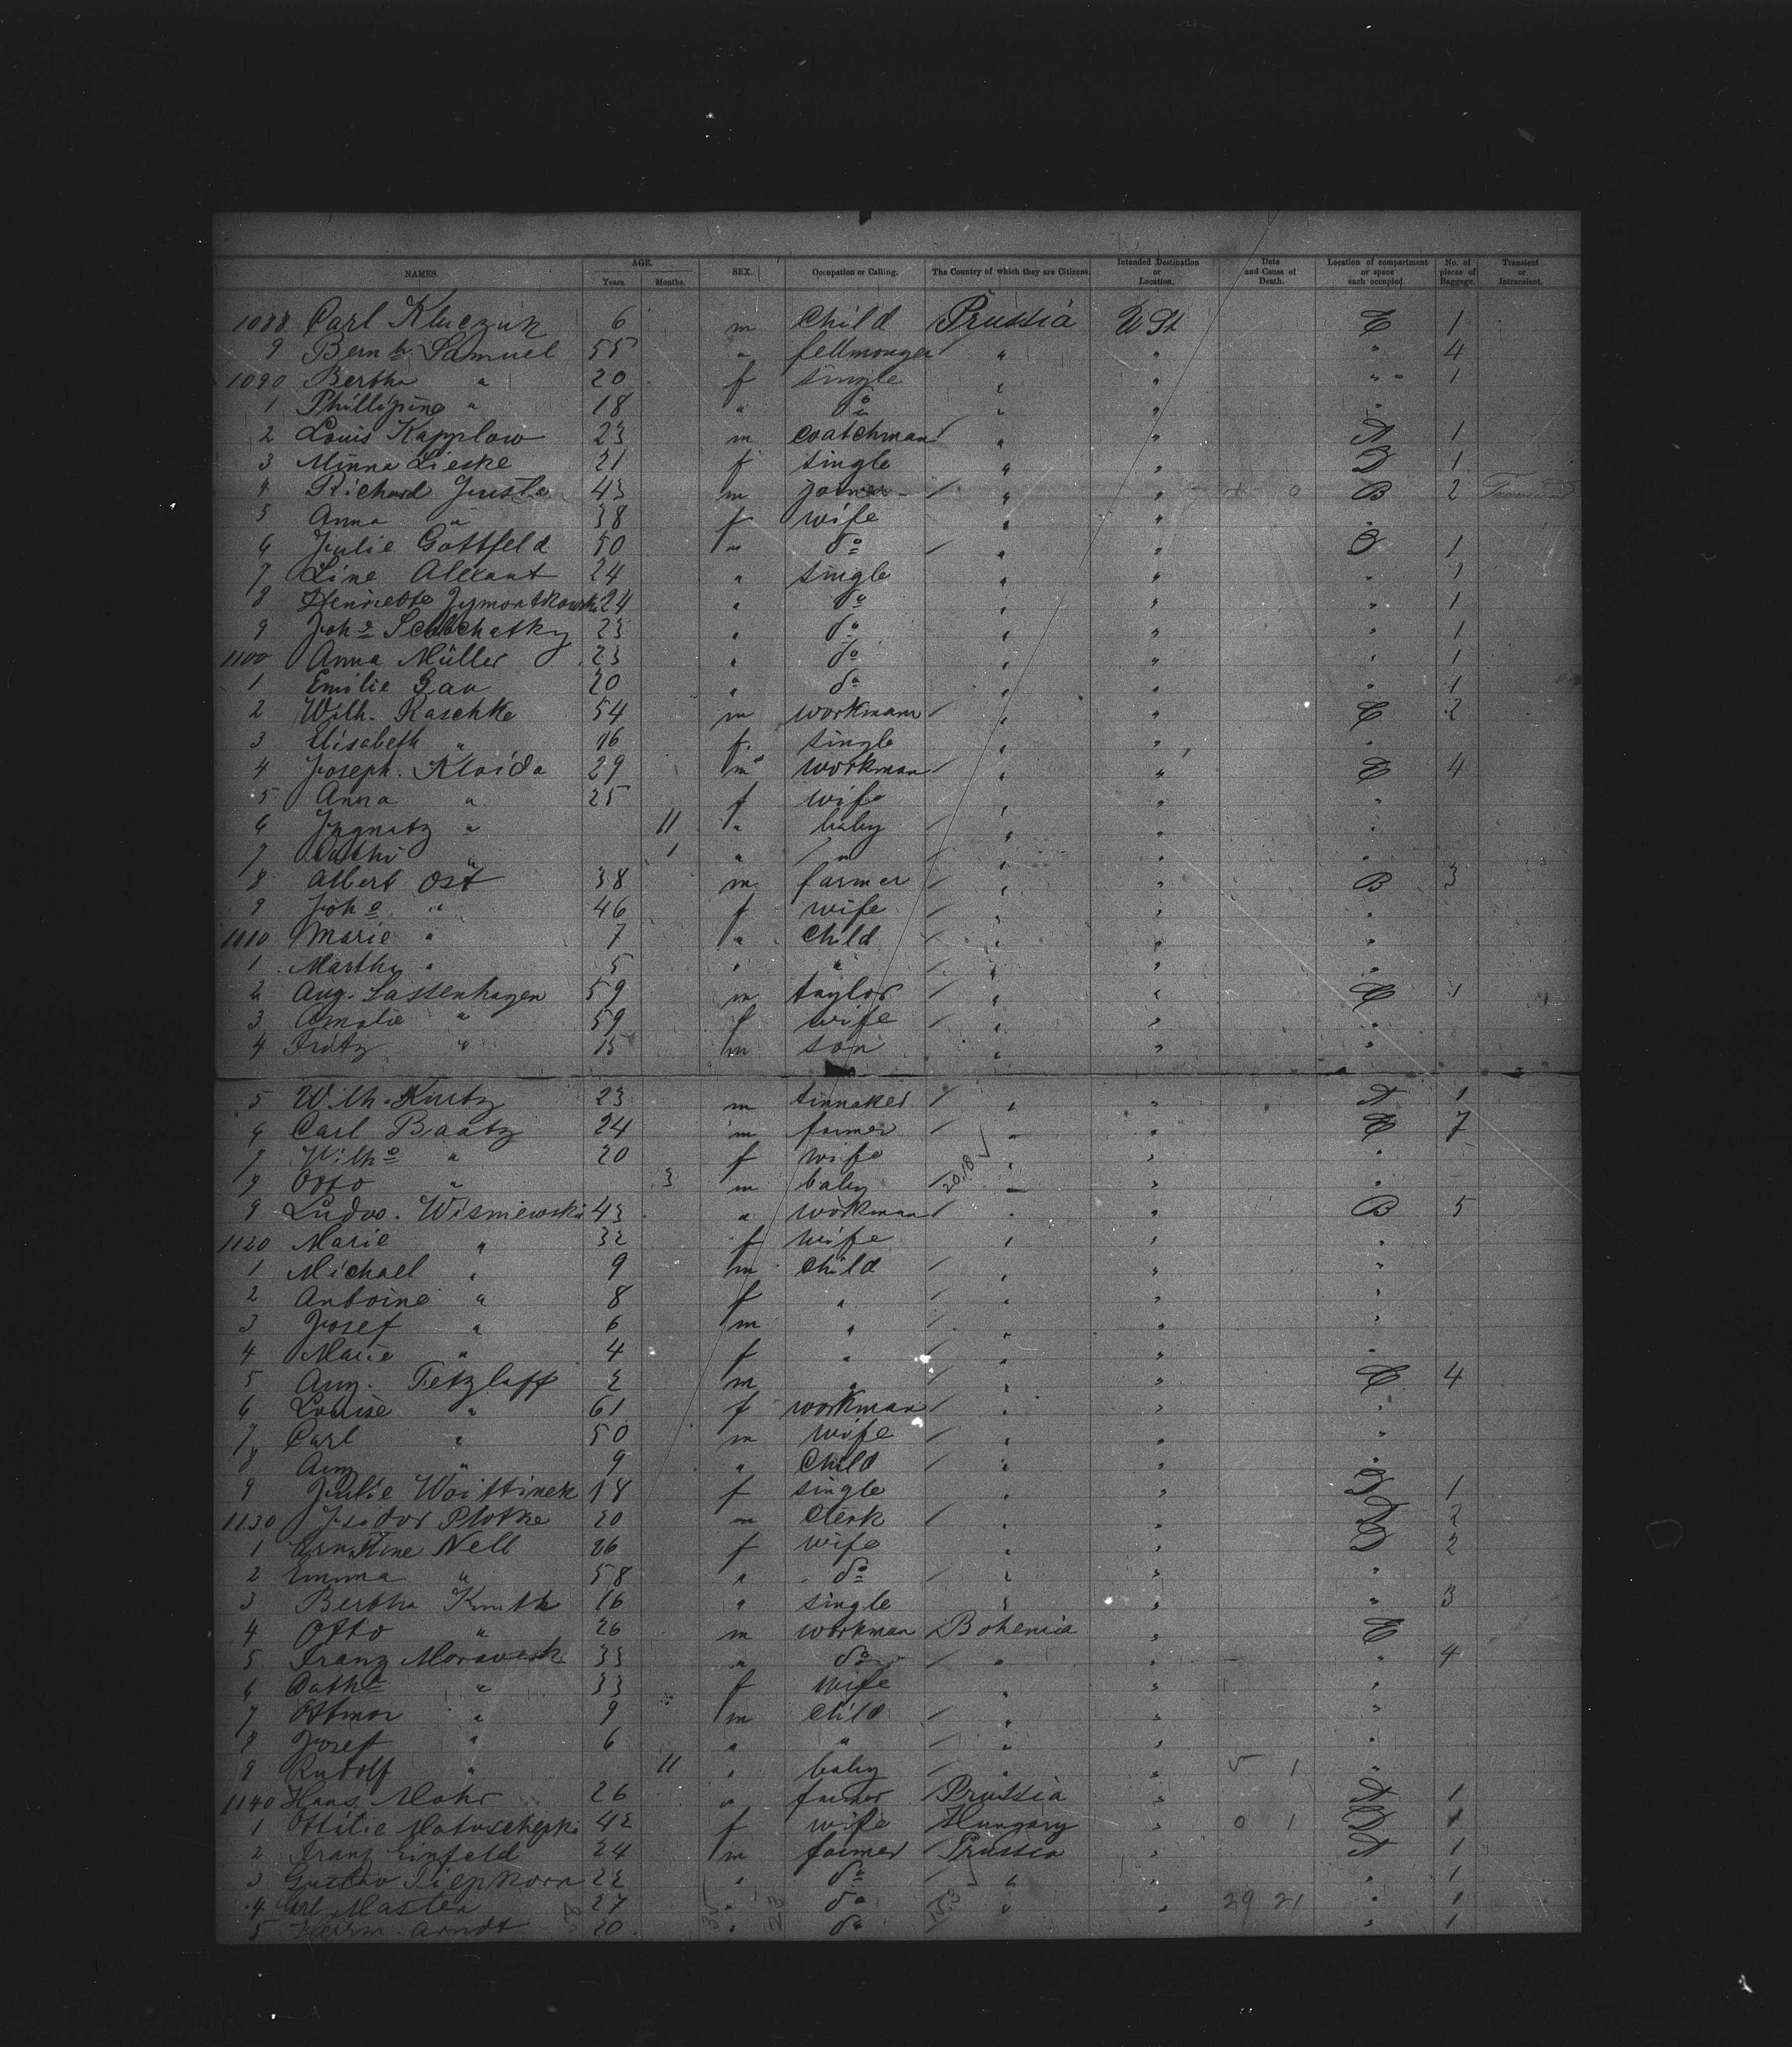 NAMES. AGE. Years. Months. SEX. Occupation or Calling. The Country of which they are Citizens. Intended Destination or Location. Date and Cause of Death. Location of compartment or space each occupied. No. of pieces of Baggage. Transient or Intransient.
1088 Carl Kluczuk 6 m child Prussia U St C 1
9 Bernh. Samuel 55 " fellmonger " " " 4
1090 Bertha " 20 f single " " " 1
1 Phillipine " 18 " do " " "
2 Louis Kapplow 23 m coatchman " " A 1
3 Minna Lieske 21 f single " " D 1
4 Richard Juste 43 m joiner " " B 2
5 Anna " 38 f wife " " "
6 Julie Gottfeld 50 " do " " D 1
7 Line 24 " single " " " 1
8 Henriette 24 " do " " " 1
9 Joh. 23 " do " " " 1
1100 Anna Müller 23 " do " " " 1
1 Emilie Gau 20 " do " " " 1
2 Wilh. Raschke 54 m workmann " " C 2
3 Elisabeth " 16 f single " " "
4 Joseph Kloida 29 m workman " " C 4
5 Anna " 25 f wife " " "
6 Jngnatz " 11 " baby " " "
7 " 1 " " " " "
8 Albert Ost 38 m farmer " " B 3
9 Joha " 46 f wife " " "
1110 Marie " 7 " child " " "
1 Martha " 5 " " " " "
2 Aug. Lassenhagen 59 m taylor " " C 1
3 Amalie " 59 f wife " " "
4 Fritz " 15 m son " " "
5 Wilh. Kurtz 23 m " " A 1
6 Carl Baatz 24 m farmer " " C 7
7 Wilha " 20 f wife " " "
8 Otto " 3 m baby " " "
9 Ludw. Wisniewski 43 " workman " " B 5
1120 Marie " 32 f wife " " "
1 Michael " 9 m child " " "
2 Antoine " 8 f " " " "
3 Josef " 6 m " " " "
4 Marie " 4 f " " " "
5 Aug. Tetzlaff 2 m " " " C 4
6 Louise " 61 f workman " " "
7 Carl " 50 m wife " " "
8 Aug " 9 " child " " "
9 Julie Woittinek 18 f single " " D 1
1130 Jsidor Plotke 20 m Clerk " " A 2
1 Ernstine Nell 26 f wife " " D 2
2 Emma " 58 " do " " "
3 Bertha Knuth 16 " single " " " 3
4 Otto " 26 m workman Bohemia " C
5 Franz Moraweck 33 " do " " " 4
6 Catha " 33 f wife " " "
7 Ottmar " 9 m child " " "
8 Josef " 6 " " " " "
9 Rudolf " 11 " baby " " "
1140 Hans Mohr 26 " farmer Prussia " A 1
1 Ottilie 42 f wife Hungary " D 1
2 Franz Einfeld 24 m farmer Prussia " A 1
3 Gustav Tiepkorn 22 " do " " " 1
4 Carl Masten 27 " do " " 29 21 " 1
5 Herm. Arndt 20 " do " 1